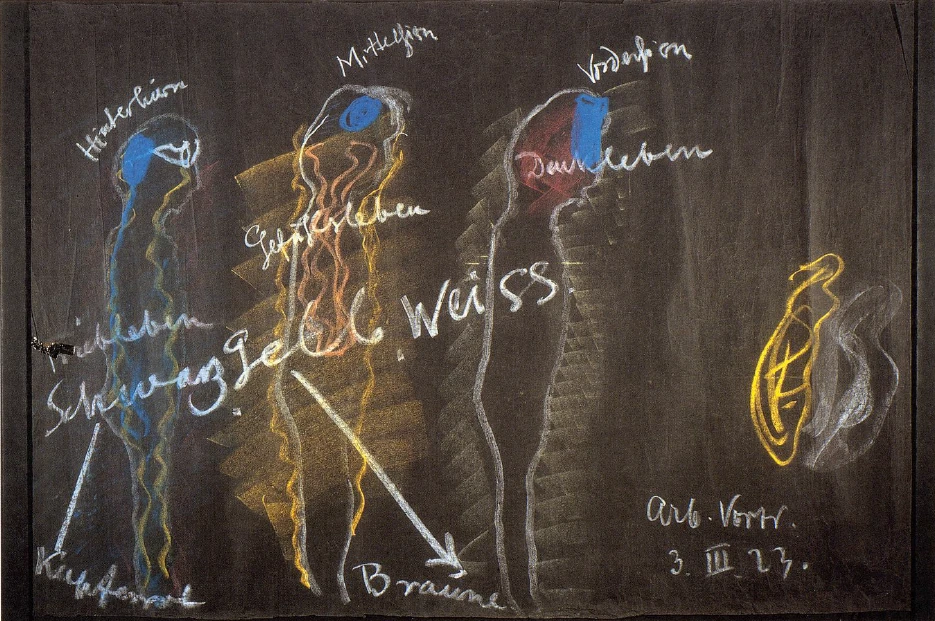 Hinterhirn
Mittelhirn
Vorderhirn
Denkleben
Gefühlsleben
Triebleben
Schwarz. Gelb. Weiss.
Kupferrote
Braune
Arb. Vortr.
3. III. 23.